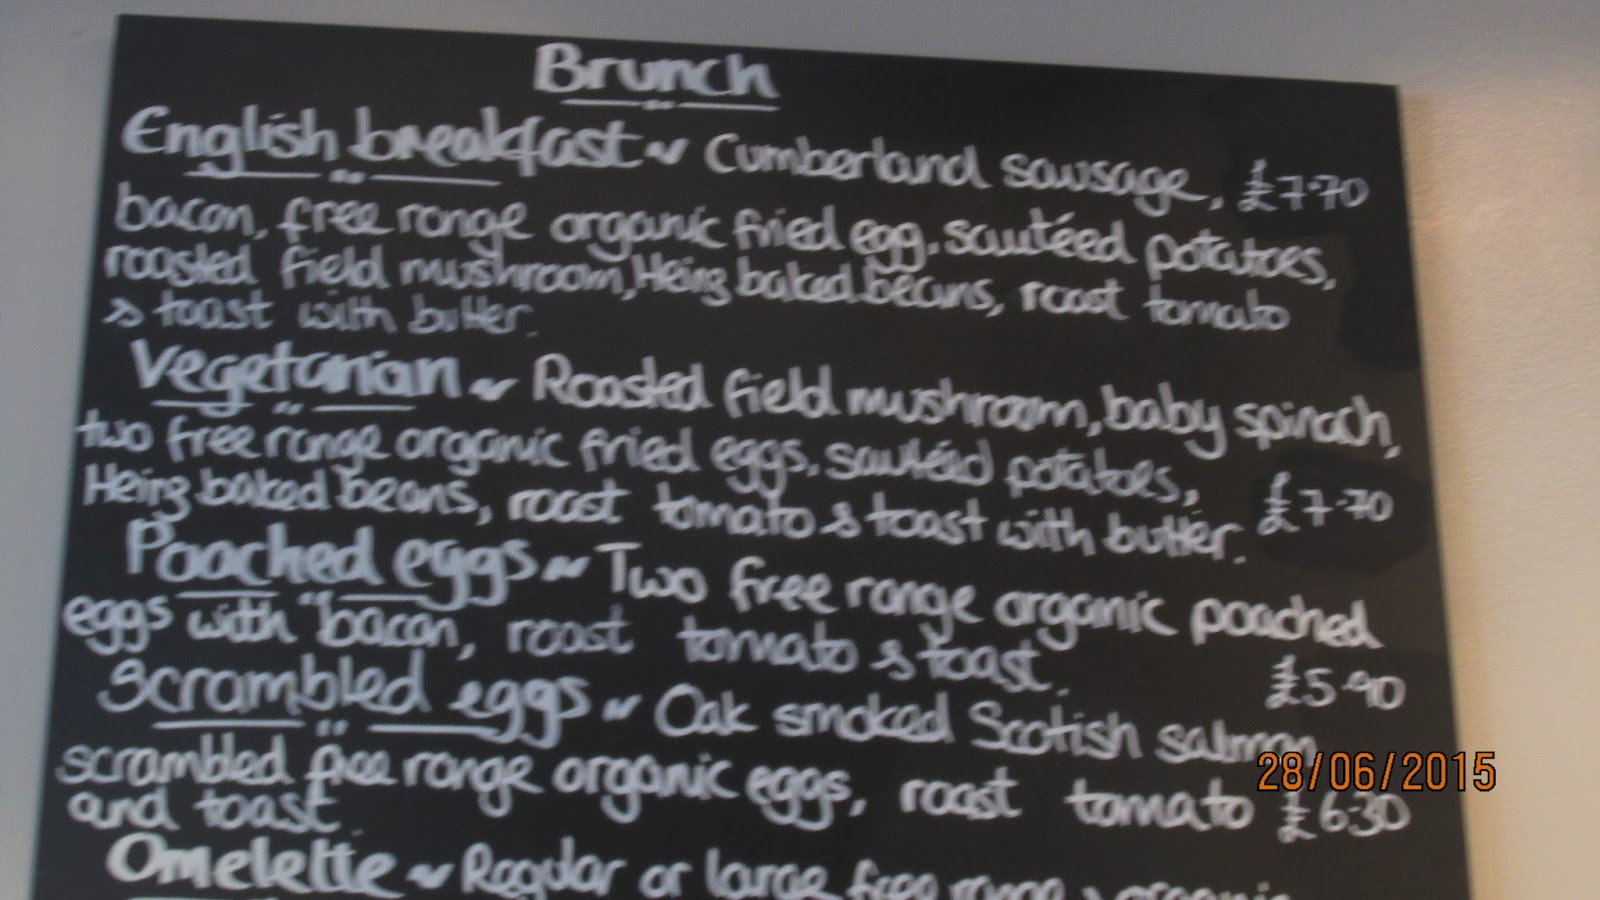 Brunch
English breakfast ~ Cumberland sausage, £7.70
bacon, free range organic fried egg, sautéed potatoes,
roasted field mushroom, Heinz baked beans, roast tomato
& toast with butter.
Vegetarian ~ Roasted field mushroom, baby spinach,
two free range organic fried eggs, sautéed potatoes,
Heinz baked beans, roast tomato & toast with butter. £7.70
Poached eggs ~ Two free range organic poached
eggs with bacon, roast tomato & toast. £5.90
Scrambled eggs ~ Oak smoked Scotish salmon
scrambled free range organic eggs, roast tomato £6.30
and toast.
Omelette ~ Regular or large free range & organic
28/06/2015